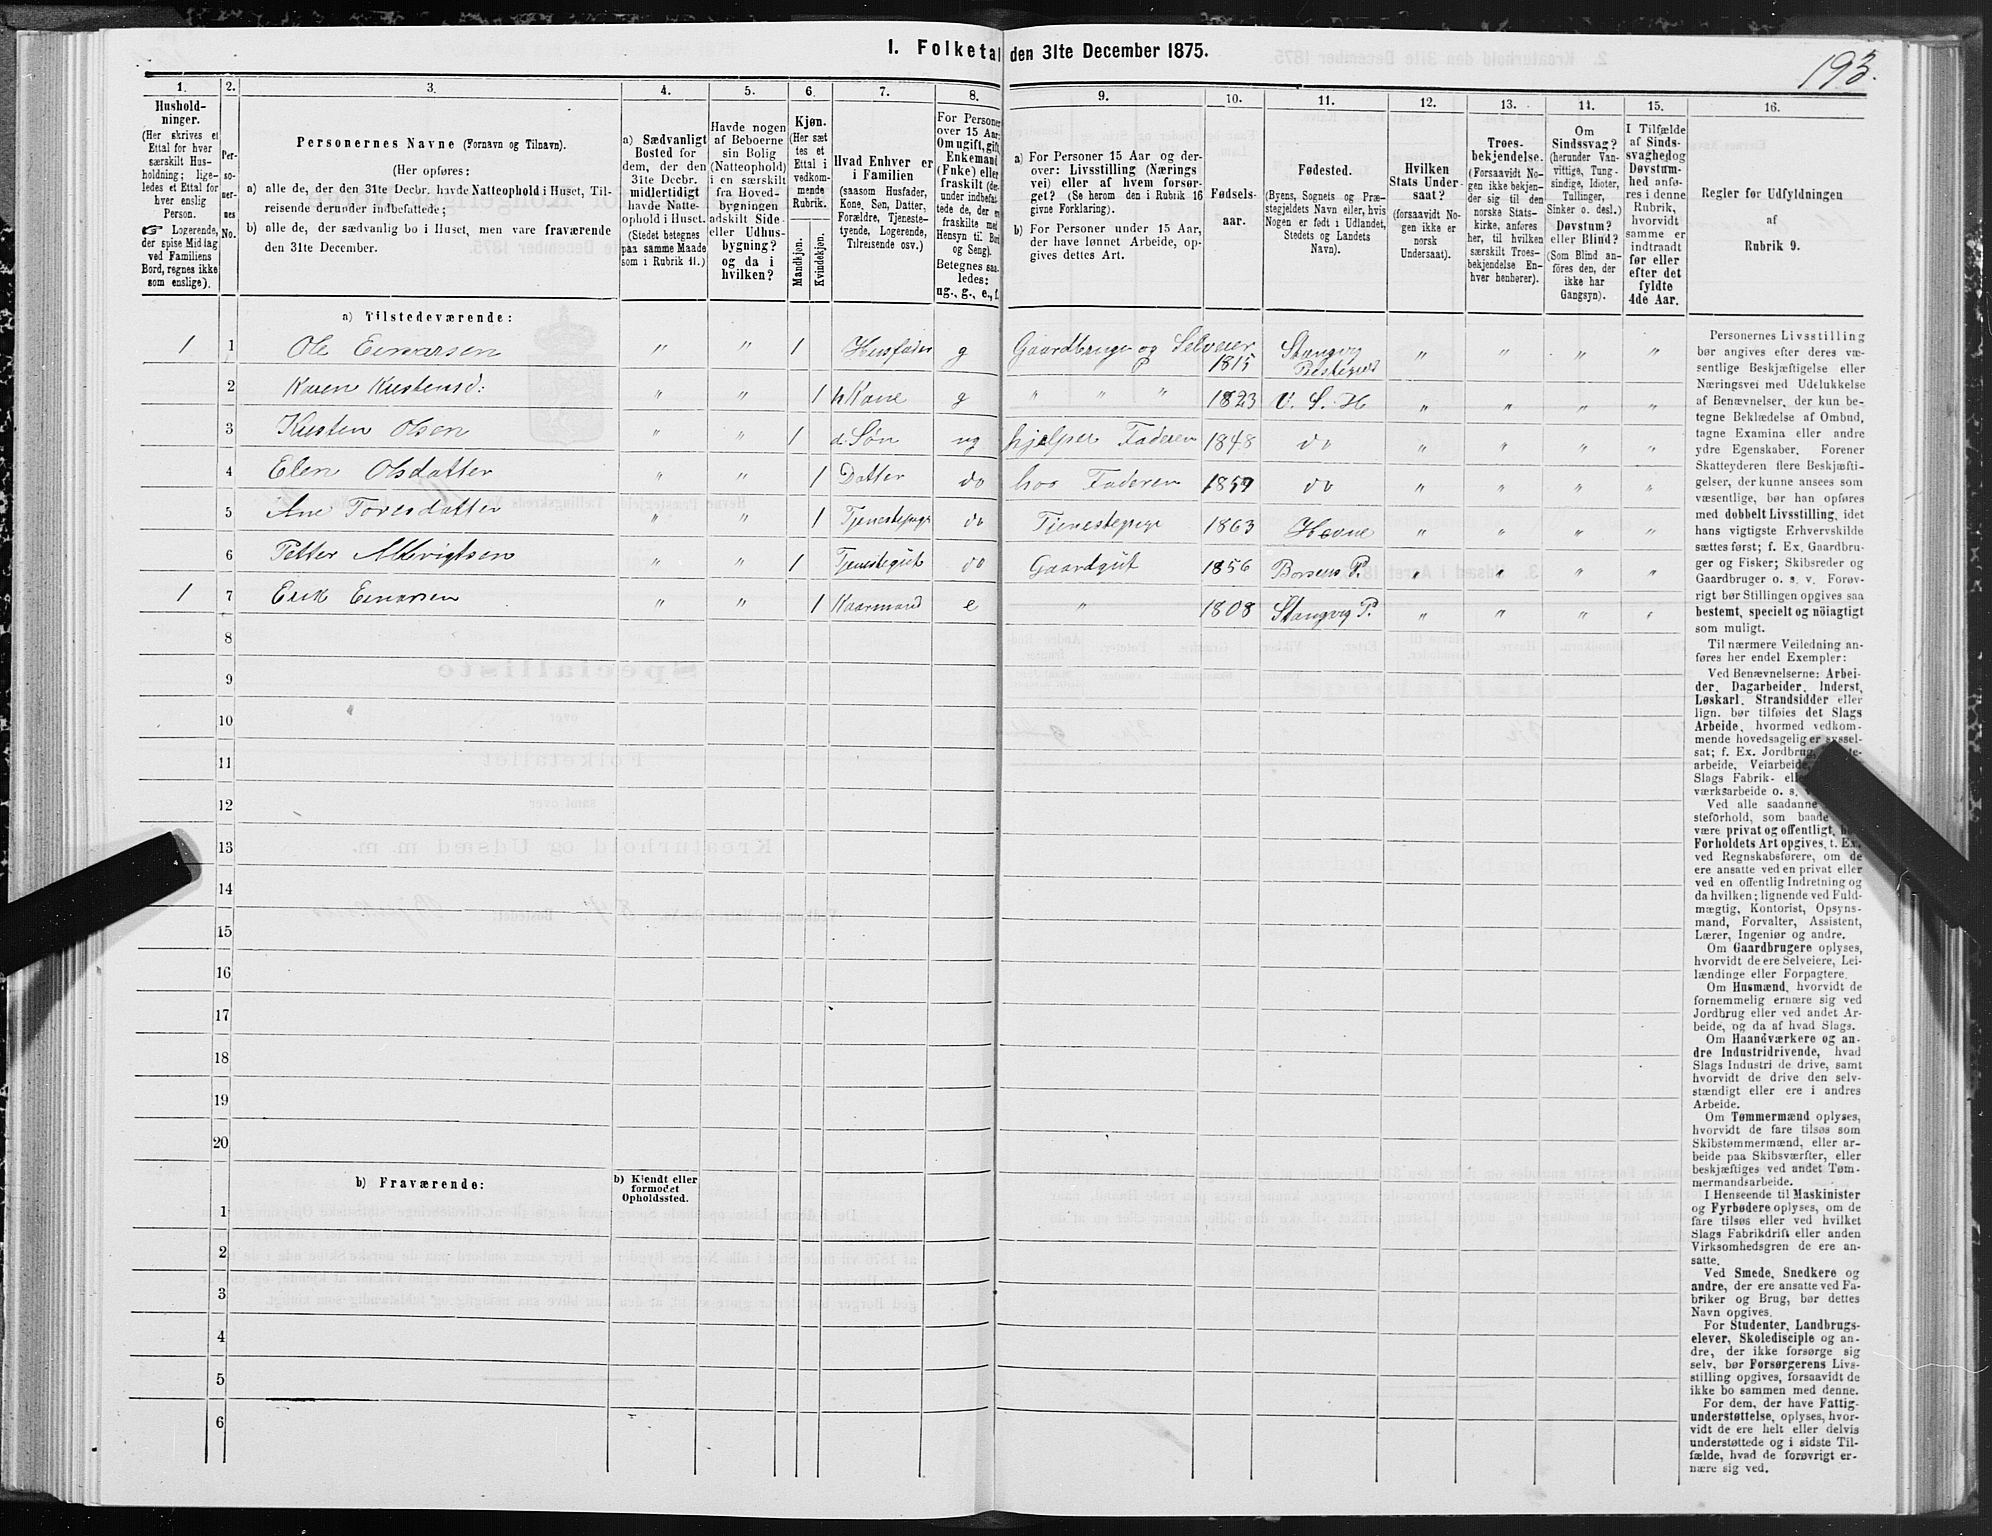 193.
I. Folketal den 31te December 1875.
1. 2. 3. 4. 5. 6. 7. 8. 9. 10. 11. 12. 13. 14. 15. 16.
Hushold-
ninger.
(Her skrives et
Ettal for hver
særskilt Hus-
holdning; lige-
ledes et Ettal for
hver enslig
Person.
☞ Logerende,
der spise Middag
ved Familiens
Bord, regnes ikke
som enslige).
Per-
so-
ner-
nes
No.
Personernes Navne (Fornavn og Tilnavn).
(Her opføres:
a) alle de, der den 31te Decbr. havde Natteophold i Huset, Til-
reisende derunder indbefattede;
b) alle de, der sædvanlig bo i Huset, men vare fraværende
den 31te December.
a) Sædvanligt
Bosted for
dem, der den
31te Decbr.
midlertidigt
havde Natte-
ophold i Huset.
(Stedet betegnes
paa samme Maade
som i Rubrik 11.)
Havde nogen
af Beboerne
sin Bolig
(Natteophold)
i en særskilt
fra Hoved-
bygningen
adskilt Side-
eller Udhus-
bygning?
og da i
hvilken?
Kjøn.
(Her sæt-
tes et
Ettal i
vedkom-
mende
Rubrik.
Mandkjøn.
Kvindekjøn.
Hvad Enhver er
i Familien
(saasom Husfader,
Kone, Søn, Datter,
Forældre, Tjeneste-
tyende, Logerende,
Tilreisende osv.)
For Personer
over 15 Aar:
Om ugift, gift,
Enkemand
(Enke) eller
fraskilt (der-
under indbefat-
tede de, der er
fraskilte med
Hensyn til Bord
og Seng).
Betegnes saa-
ledes:
ug., g., e., f.
a) For Personer 15 Aar og der-
over: Livsstilling (Nærings-
vei) eller af hvem forsør-
get? (Se herom den i Rubrik 16
givne Forklaring).
b) For Personer under 15 Aar,
der have lønnet Arbeide, op-
gives dettes Art.
Fødsels-
aar.
Fødested.
(Byens, Sognets og Præ-
stegjeldets Navn eller, hvis
Nogen er født i Udlandet,
Stedets og Landets
Navn).
Hvilken
Stats Under-
saat?
(forsaavidt No-
gen ikke er
norsk
Undersaat).
Troes-
bekjendelse.
(Forsaavidt No-
gen ikke bekjen-
der sig til den
norske Stats-
kirke, anføres
her, til hvilken
særskilt Troes-
bekjendelse En-
hver henhører).
Om
Sindssvag?
(herunder Van-
vittige, Tung-
sindige, Idioter,
Tullinger,
Sinker o. desl.)
Døvstum?
eller Blind?
(Som Blind an-
føres den, der
ikke har
Gangsyn).
I Tilfælde
af Sinds-
svaghed og
Døvstum-
hed anfø-
res i denne
Rubrik,
hvorvidt
samme er
indtraadt
før eller
efter det
fyldte
4de Aar.
Regler for Udfyldningen
af
Rubrik 9.
a) Tilstedeværende:
1 1 Ole Einarsen " " 1 Husfader g Gaardbruger og Selveier 1815 Stangvig Præstegield " " " "
2 Karen Kristensd: " " 1 h Kone g " " " 1823 V. S. H " " " "
3 Kristen Olsen " " 1 d. Søn ug hjelper Faderen 1848 do " " " "
4 Elen Olsdatter " " 1 Datter do hos Faderen 1859 do " " " "
5 Ane Toresdatter " " 1 Tjenestepige do Tjenestepige 1863 Hevne " " " "
6 Petter Albrigtsen " " 1 Tjenestegut do Gaardgut 1856 Borsens P. " " " "
1 7 Erik Einarsen " " 1 Kaarmand e " 1808 Stangvig P. " " " "
8
9
10
11
12
13
14
15
16
17
18
19
20
b) Fraværende:
b) Kjendt eller
formodet
Opholdssted.
1
2
3
4
5
6
Personernes Livsstilling
bør angives efter deres væ-
sentlige Beskjæftigelse eller
Næringsvei med Udelukkelse
af Benævnelser, der kun be-
tegne Beklædelse af Ombud,
tagne Examina eller andre
ydre Egenskaber. Forener
Skatteyderen flere Beskjæfti-
gelser, der kunne ansees som
væsentlige, bør han opføres
med dobbelt Livsstilling, idet
hans vigtigste Erhvervskilde
sættes først; f. Ex. Gaardbru-
ger og Fisker; Skibsreder og
Gaardbruger o. s. v. Forøv-
rigt bør Stillingen opgives saa
bestemt, specielt og nöiagtigt
som muligt.
Til nærmere Veiledning an-
føres her endel Exempler:
Ved Benævnelserne: Arbei-
der, Dagarbeider, Inderst,
Løskarl, Strandsidder eller
lign. bør tilføies det Slags
Arbeide, hvormed vedkom-
mende hovedsagelig er syssel-
sat; f. Ex. Jordbrug,
arbeide, Veiarbeide,
Slags Fabrik-
værksarbeide o. s. v.
Ved alle saadanne
steforhold, som baade
være privat og offentligt,
Forholdets Art opgives, t. Ex.
ved Regnskabsførere, om de
ere ansatte ved en privat eller
ved en offentlig Indretning og
da hvilken; lignende ved Fuld-
mægtig, Kontorist, Opsyns-
mand, Forvalter, Assistent,
Lærer, Ingeniør og andre.
Om Gaardbrugere oplyses,
hvorvidt de ere Selveiere, Lei-
lændinge eller Forpagtere.
Om Husmænd, hvorvidt de
fornemmelig ernære sig ved
Jordbrug eller ved andet Ar-
beide, og da af hvad Slags.
Om Haandværkere og an-
dre Industridrivende, hvad
Slags Industri de drive, samt
hvorvidt de drive den selv-
stændigt eller ere i andres
Arbeide.
Om Tømmermænd oplyses,
hvorvidt de fare tilsøs som
Skibstømmermænd, eller ar-
beide paa Skibsværfter, eller
beskjæftiges ved andet Tøm-
mermandsarbeide.
I Henseende til Maskinister
og Fyrbødere oplyses, om de
fare tilsøs eller ved hvilket
Slags Fabrikdrift eller anden
Virksomhedsgren de ere an-
satte.
Ved Smede, Snedkere og
andre, der ere ansatte ved Fa-
briker og Brug, bør dettes
Navn opgives.
For Studenter, Landbrugs-
elever, Skoledisciple og an-
dre, der ikke forsørge sig
selv, bør Forsørgerens Livs-
stilling opgives, forsaavidt de
ikke bo sammen med denne.
For dem, der have Fattig-
understøttelse, oplyses, hvor-
vidt de ere helt eller delvis
understøttede og i sidste Til-
fælde, hvad de forøvrigt er-
nære sig ved.